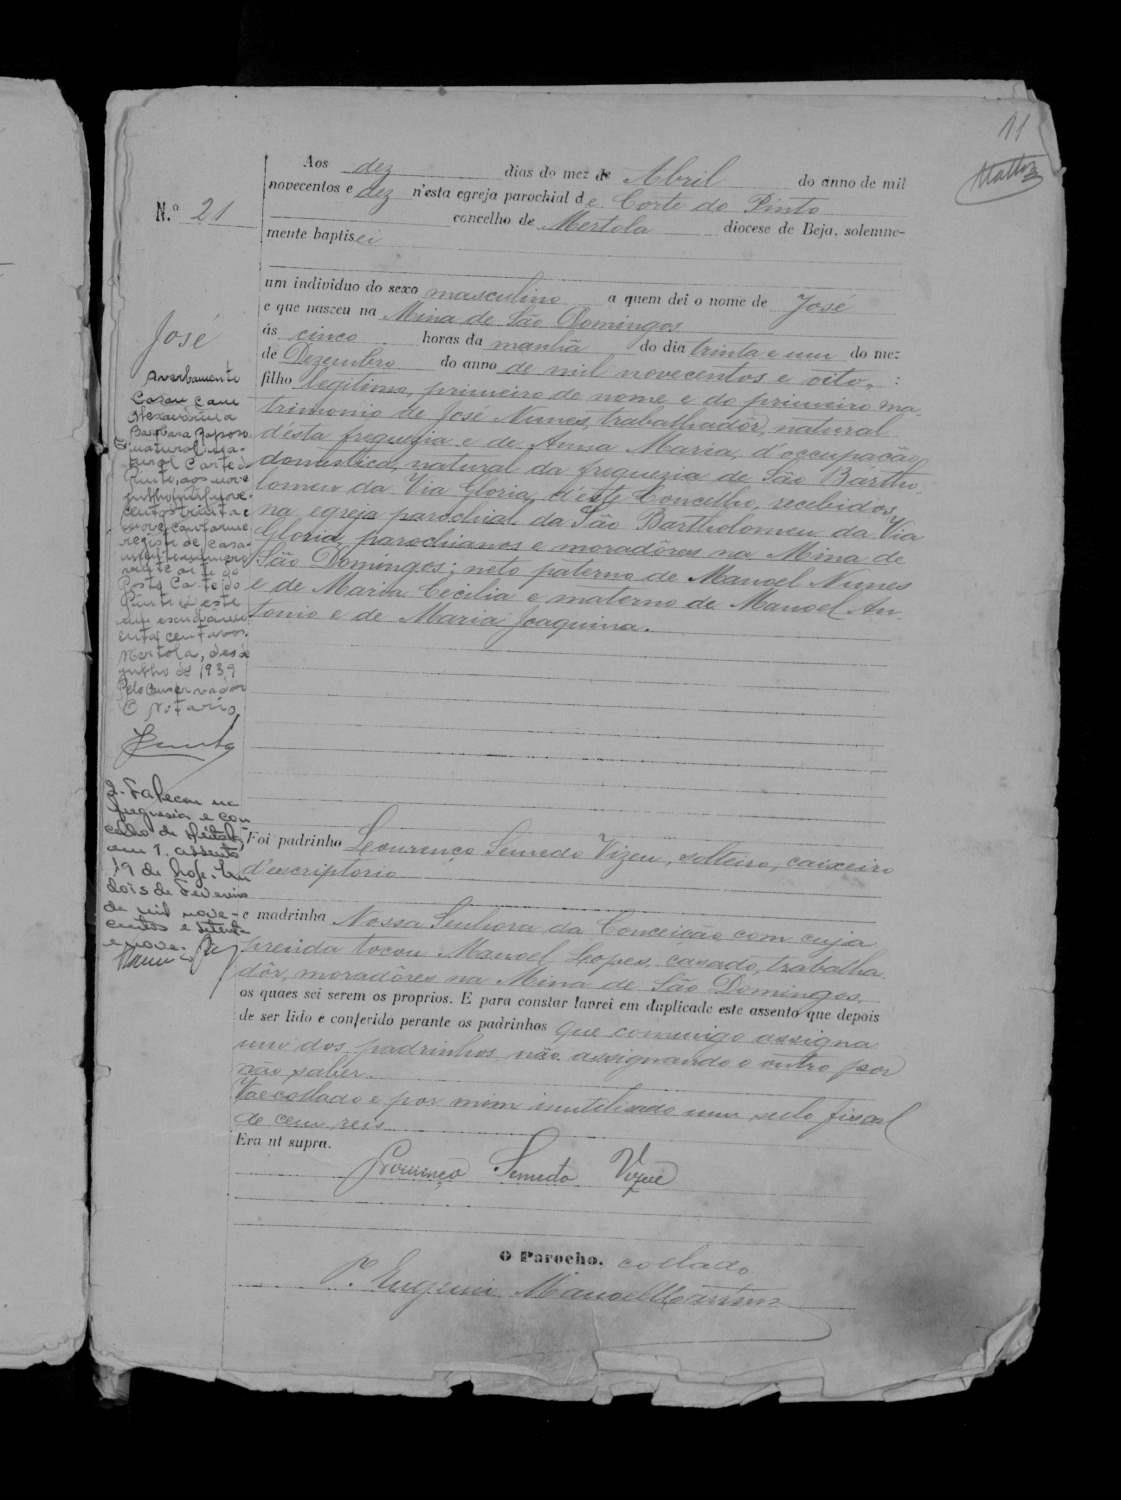 11
Mattos
Aos dez dias do mez de Abril do anno de mil
novecentos e dez n'esta egreja parochial de Corte do Pinto
N.º 21
concelho de Mertola diocese de Beja, solemne-
mente baptisei
um individuo do sexo masculino a quem dei o nome de José
e que nasceu na Mina de São Domingos
ás cinco horas da manhã do dia trinta e um do mez
de Dezembro do anno de mil novecentos e oito, :
filho legitimo, primeiro de nome e do primeiro ma
trimonio de José Nunes, trabalhadôr, natural
d'ésta freguezia e de Anna Maria, d'occupação
domestica, natural da freguezia de São Bártho
lomeu da Via Gloria, d'éste Concelho, recebidos
na egreja parochial da São Bartholomeu da Via
Gloria, parochianos e moradôres na Mina de
São Domingos; neto paterno de Manoel Nunes
e de Maria Cecilia e materno de Manoel An
tonio e de Maria Joaquina.
José
Averbamento
Casou com
Alexandrina
Barbara Raposo
natural da
Corte do
Pinto, aos nove
julho mil nove-
centos trinta e
nove conforme
registo de casa-
mento numero
vinte oito do
Posto Corte do
Pinto
centavos
Mertola, dez de
julho de 1939
Pelo Conservador
O Notario,
2. Faleceu na
freguesia e con
celho de Setubal
em 1. assento
19 de hoje. Em
dois de Fevereiro
de mil nove-
centos e setenta
e nove.
Foi padrinho Lourenço Semedo Vizeu, solteiro, caixeiro
d'escriptorio
e madrinha Nossa Senhora da Conceição com cuja
prenda tocou Manoel Lopes, casado, trabalha
dôr, moradôres na Mina de São Domingos,
os quaes sei serem os proprios. E para constar lavrei em duplicado este assento que depois
de ser lido e conferido perante os padrinhos que commigo assigna
um dos padrinhos não assignando o outro por
não saber.
Vae collado e por mim inutilisado um sello fiscal
de cem reis
Era ut supra.
Lourenço Semedo Vizeu
O Parocho, collado
P.e Eugenio Manoel Martins